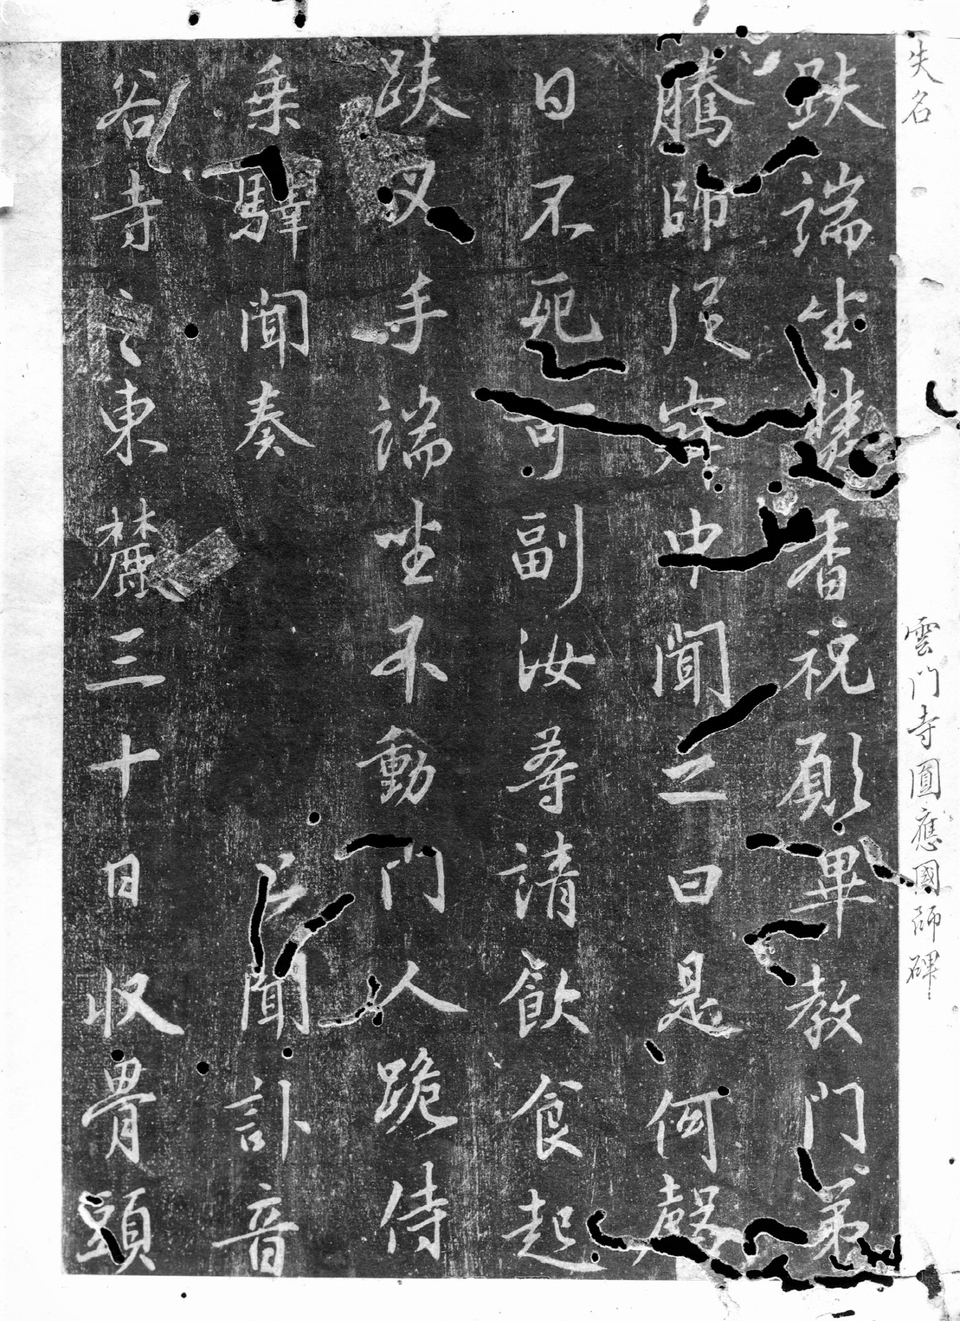 失名 雲門寺圓應國師碑
趺端坐焚香祝願畢教門弟
騰師從定中聞二曰是何聲
日不死可副汝等請飲食起
趺叉手端坐不動門人跪侍
乗驛聞奏 聞訃音
谷寺之東麓三十日收骨頭